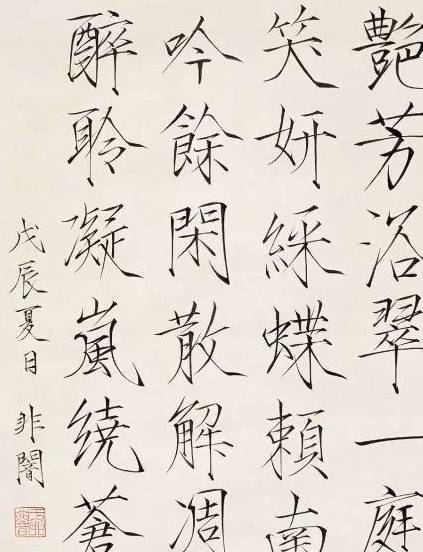 艷芳浴翠一庭
笑妍綵蝶頼南
吟餘閑散解凋
醉聆凝嵐繞蒼
戊辰夏日 非闇